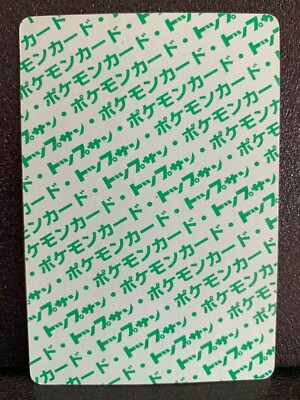 ンカード・トップサン
ポケモンカード・トップサン
トップサン・ポケモンカード・
ポケモンカード・トップサン・
トップサン・ポケモンカード・
ポケモンカード・トップサン・
トップサン・ポケモンカード・
ポケモンカード・トップサン・
トップサン・ポケモンカード・
ポケモンカード・トップサン・
トップサン・ポケモンカード
ポケモンカード・トップサン
トップサン・ポケモンカード
ポケモンカード